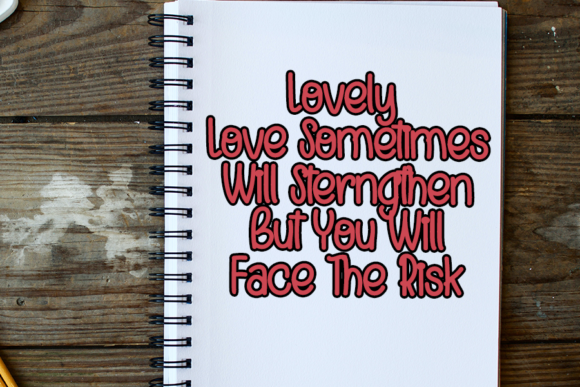 Lovely
Love Sometimes
Will Sterngthen
But You Will
Face The Risk